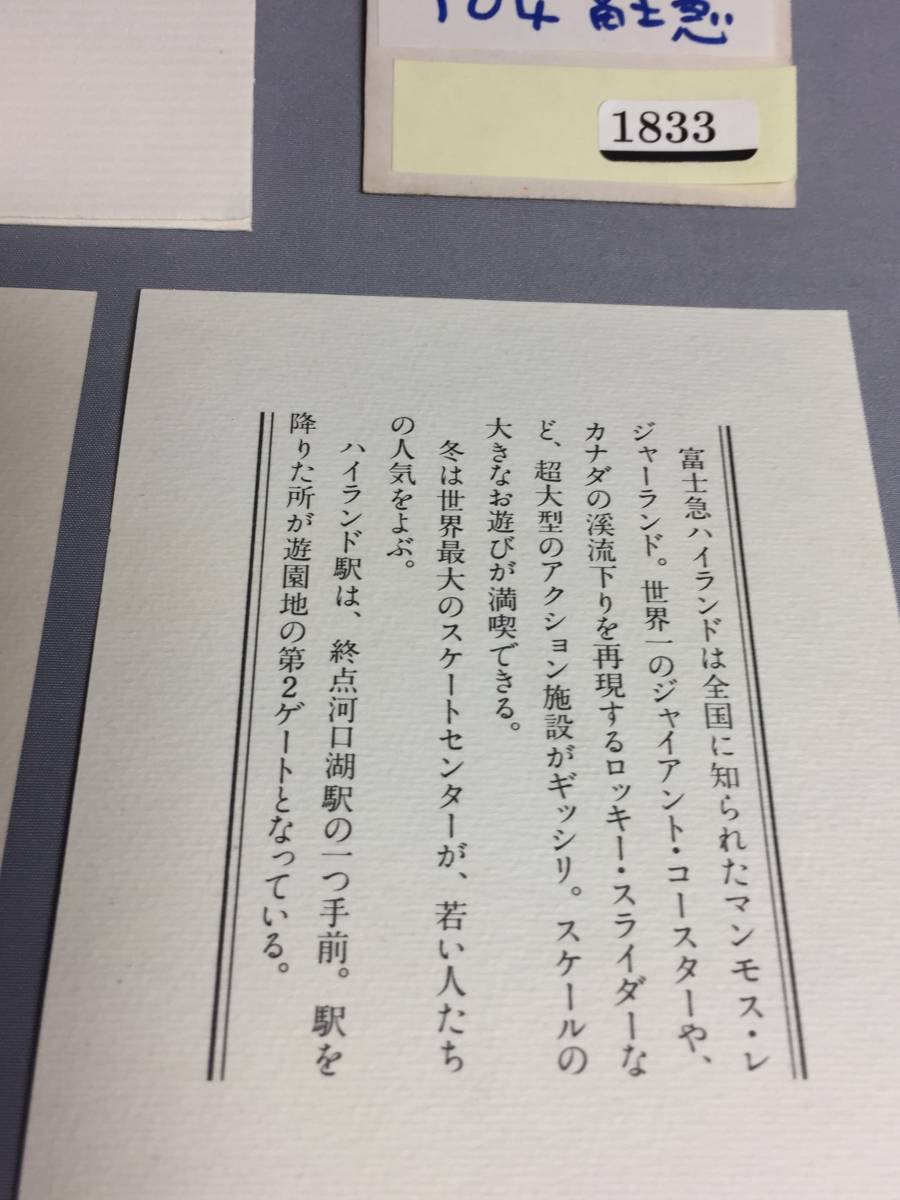 104 富士急
1833
富士急ハイランドは全国に知られたマンモス・レ
ジャーランド。世界一のジャイアント・コースターや、
カナダの渓流下りを再現するロッキー・スライダーな
ど、超大型のアクション施設がギッシリ。スケールの
大きなお遊びが満喫できる。
冬は世界最大のスケートセンターが、若い人たち
の人気をよぶ。
ハイランド駅は、終点河口湖駅の一つ手前。駅を
降りた所が遊園地の第2ゲートとなっている。